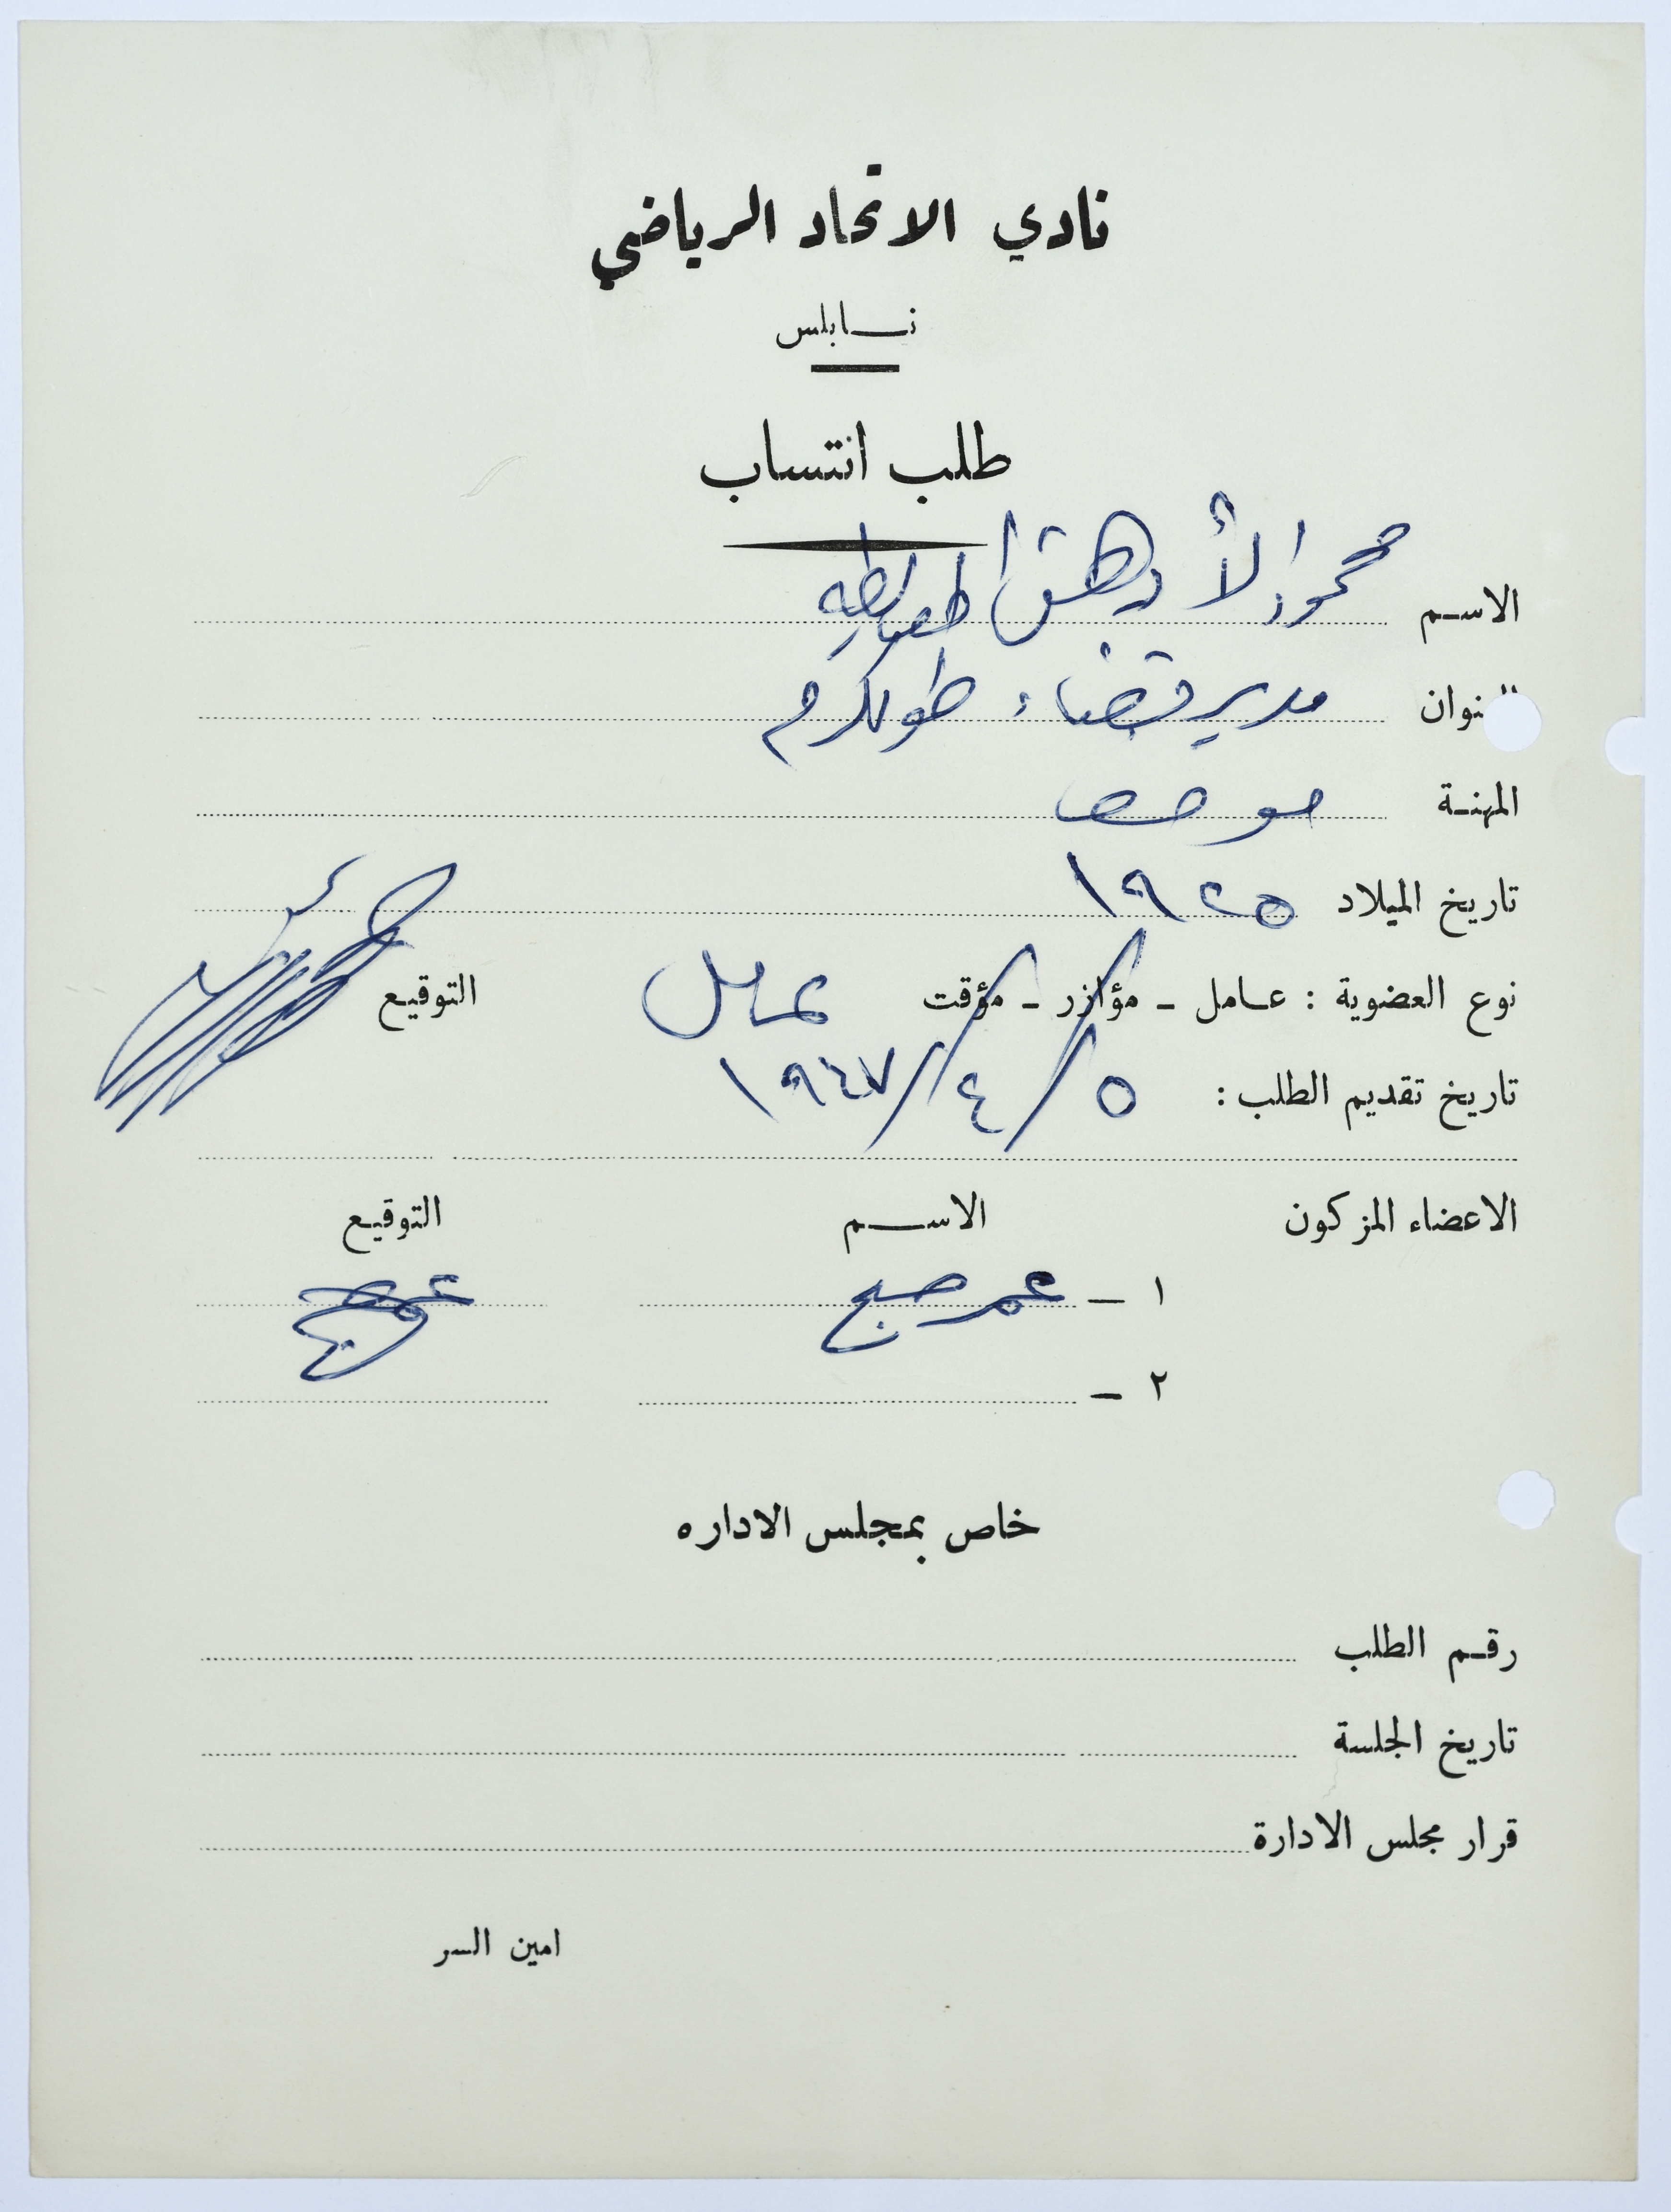 نادي الاتحاد الرياضي
نابلس
طلب انتساب
الاسم محمود الأدهق
العنوان مدير قضاء طولكرم
المهنة موظف
تاريخ الميلاد ١٩٢٥
نوع العضوية : عامل - مؤازر - مؤقت عامل التوقيع
تاريخ تقديم الطلب : ٥/٤/١٩٤٧
الاعضاء المزكون الاسم التوقيع
١ - عمر صبح
٢ -
خاص بمجلس الاداره
رقم الطلب
تاريخ الجلسة
قرار مجلس الادارة
امين السر